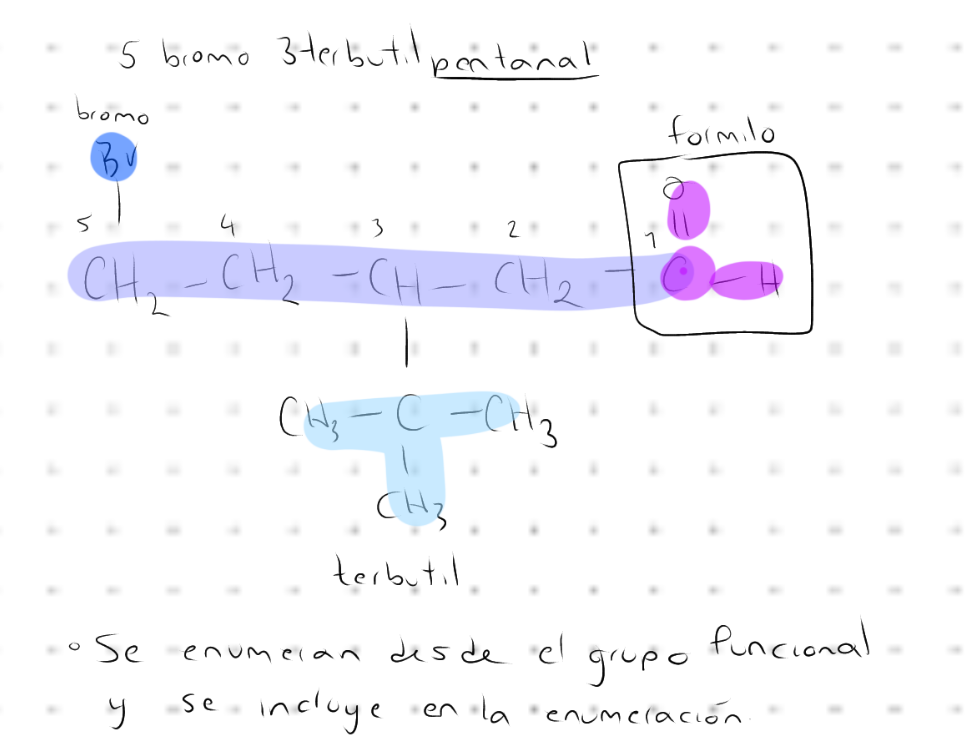 5 bromo 3terbutil pentanal
bromo
Br
formilo
O
||
5 4 3 2 1
CH2 - CH2 - CH - CH2 - C - H
|
CH3 - C - CH3
|
CH3
terbutil
◦ Se enumeran desde el grupo funcional
y se incluye en la enumeración.